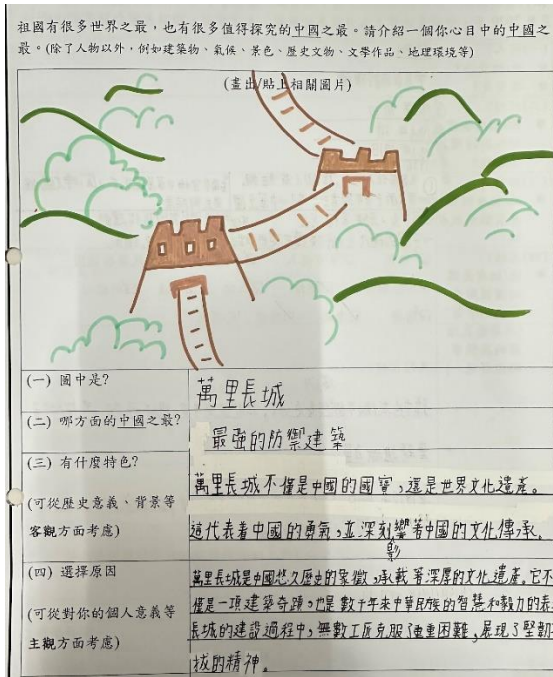 祖國有很多世界之最，也有很多值得探究的中國之最。請介紹一個你心目中的中國之
最。(除了人物以外，例如建築物、氣候、景色、歷史文物、文學作品、地理環境等)
(畫出/貼上相關圖片)
(一) 圖中是?
萬里長城
(二) 哪方面的中國之最?
最強的防禦建築
(三) 有什麼特色?
(可從歷史意義、背景等
客觀方面考慮)
萬里長城不僅是中國的國寶，這是世界文化遺產。
這代表着中國的勇氣，並深刻影響著中國的文化傳承。
(四) 選擇原因
(可從對你的個人意義等
主觀方面考慮)
萬里長城是中國悠久歷史的象徵，承載著深厚的文化遺產。它不
僅是一項建築奇蹟，也是數千年來中華民族的智慧和毅力的表
長城的建設過程中，無數工匠克服了重重困難，展現了堅韌
拔的精神。